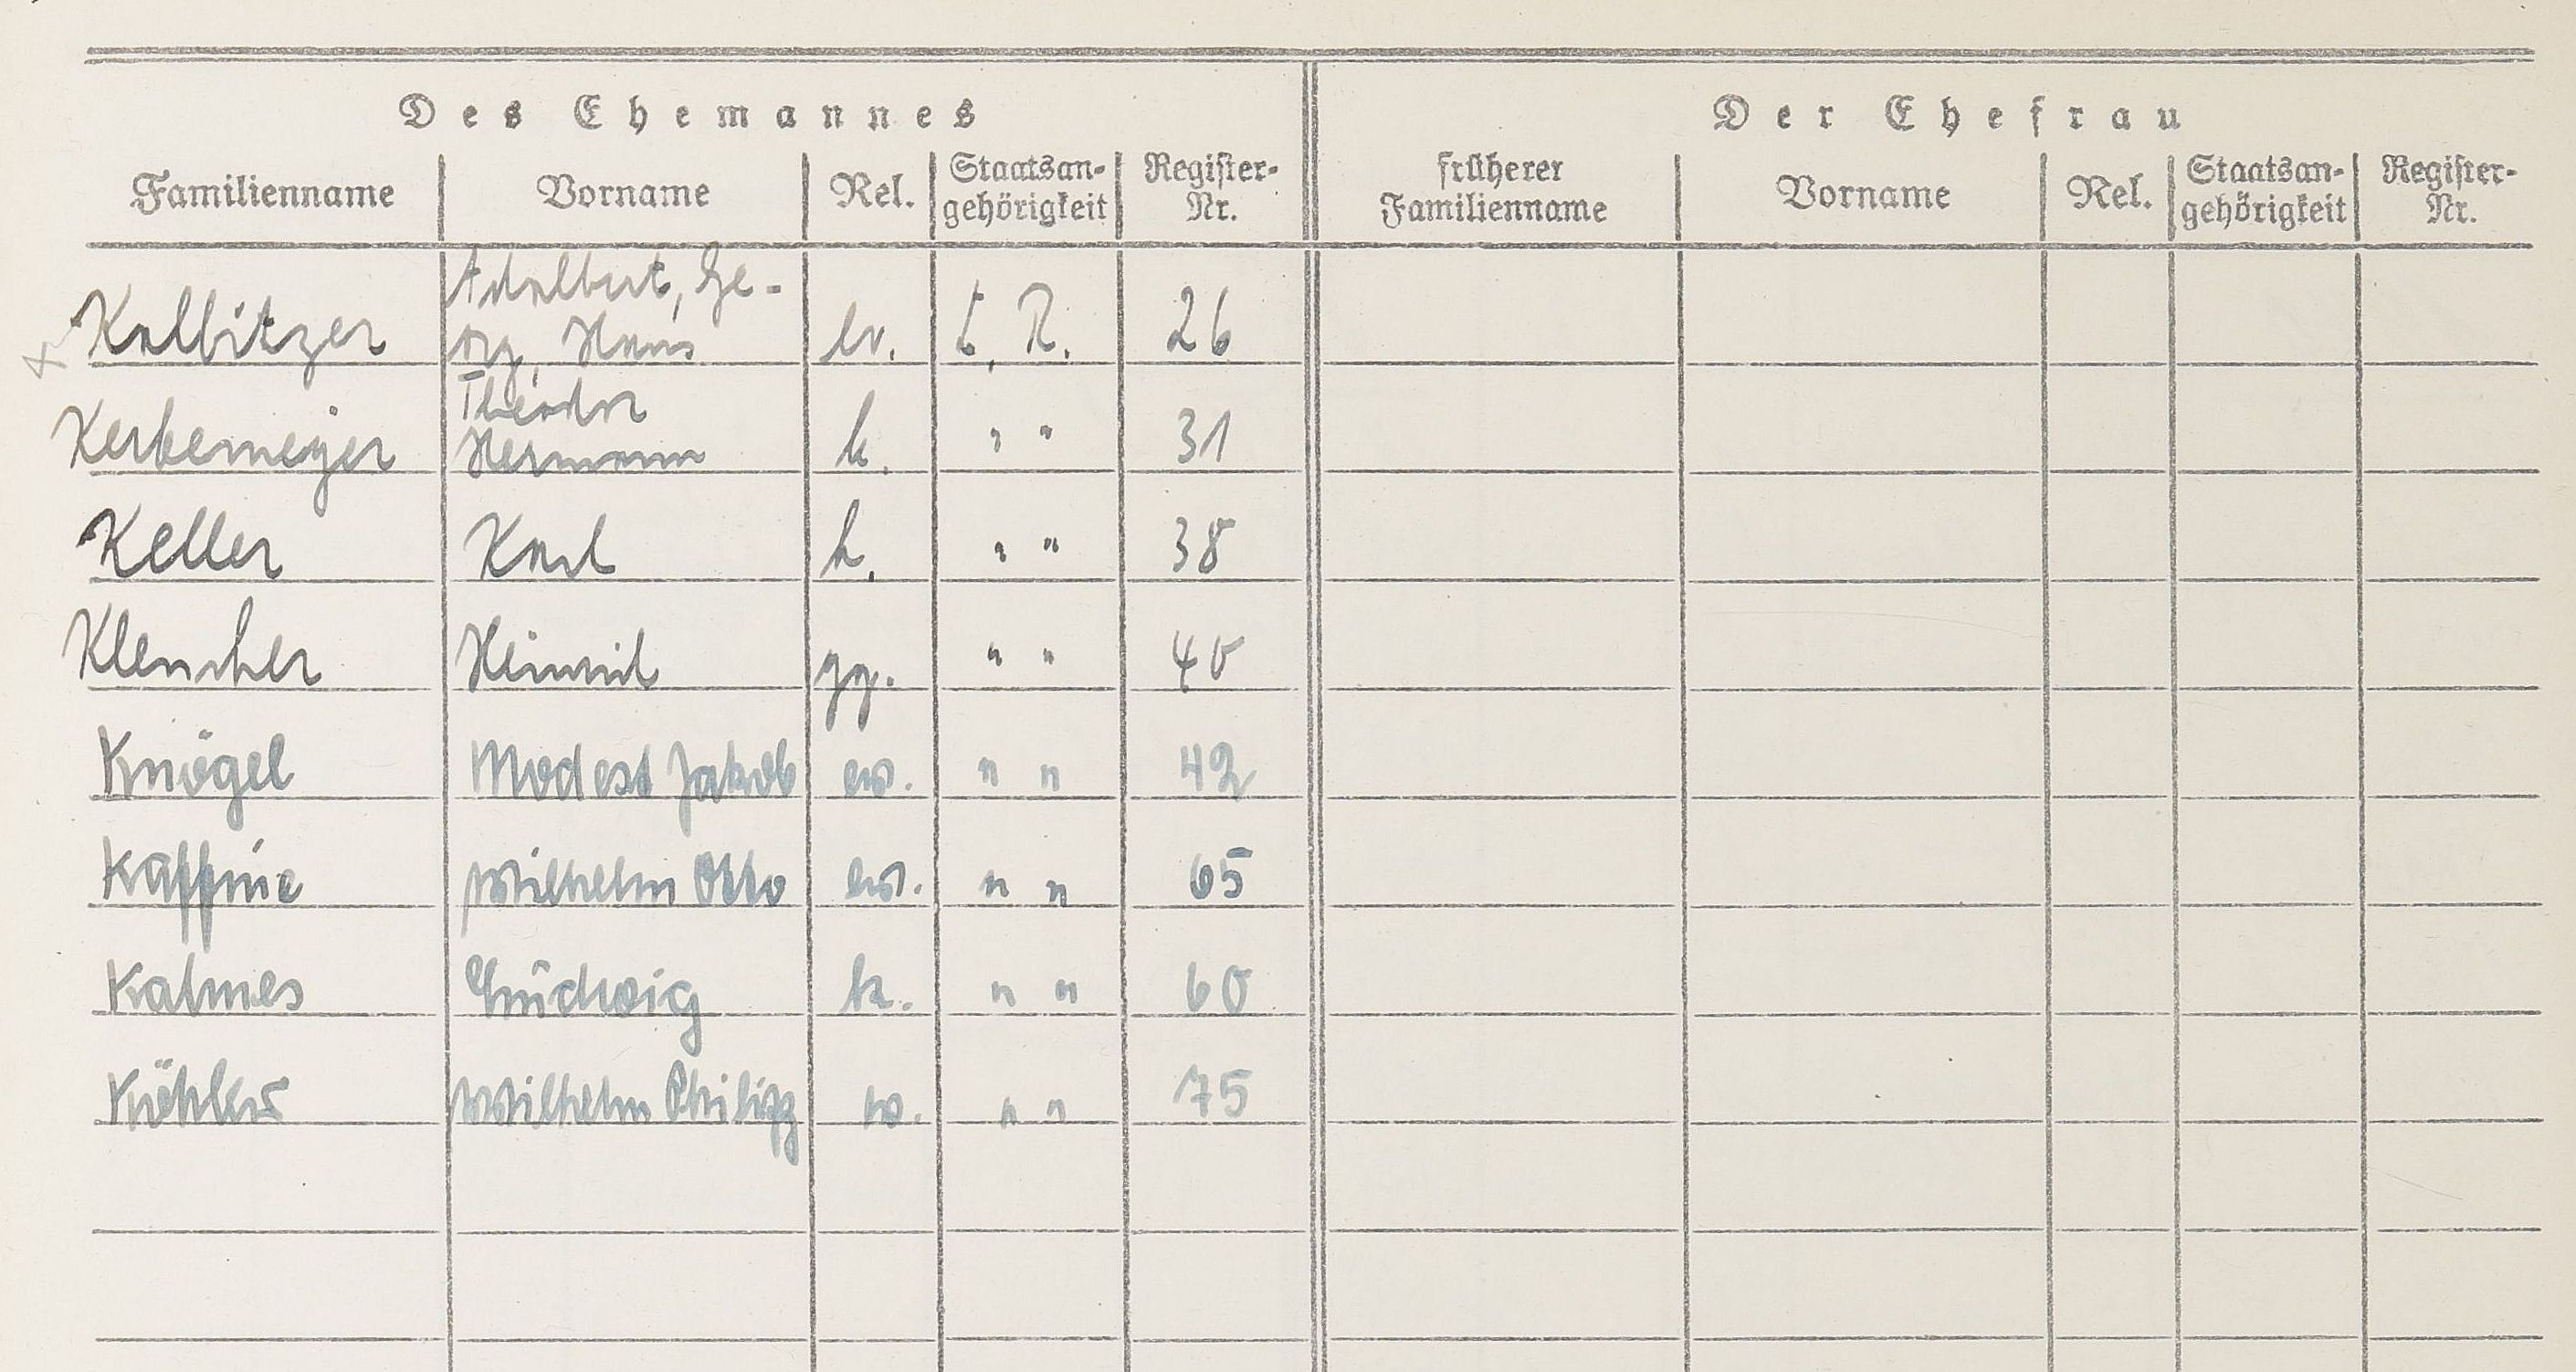 Des Ehemannes Der Ehefrau
Familienname Vorname Rel. Staatsan-gehörigkeit Register-Nr. früherer Familienname Vorname Rel. Staatsan-gehörigkeit Register-Nr.
Adalbert, Ge-
Kalbitzer org, Hans ev. D. R. 26
Theodor
Kerkemeyer Hermann k. " " 31
Keller Karl k. " " 38
Klencher Heinrich gg. " " 40
Knögel Modest Jakob ev. " " 42
Wilhelm Otto ev. " " 65
Kalmes Ludwig k. " " 60
Köhler Wilhelm Philipp ev. " " 75